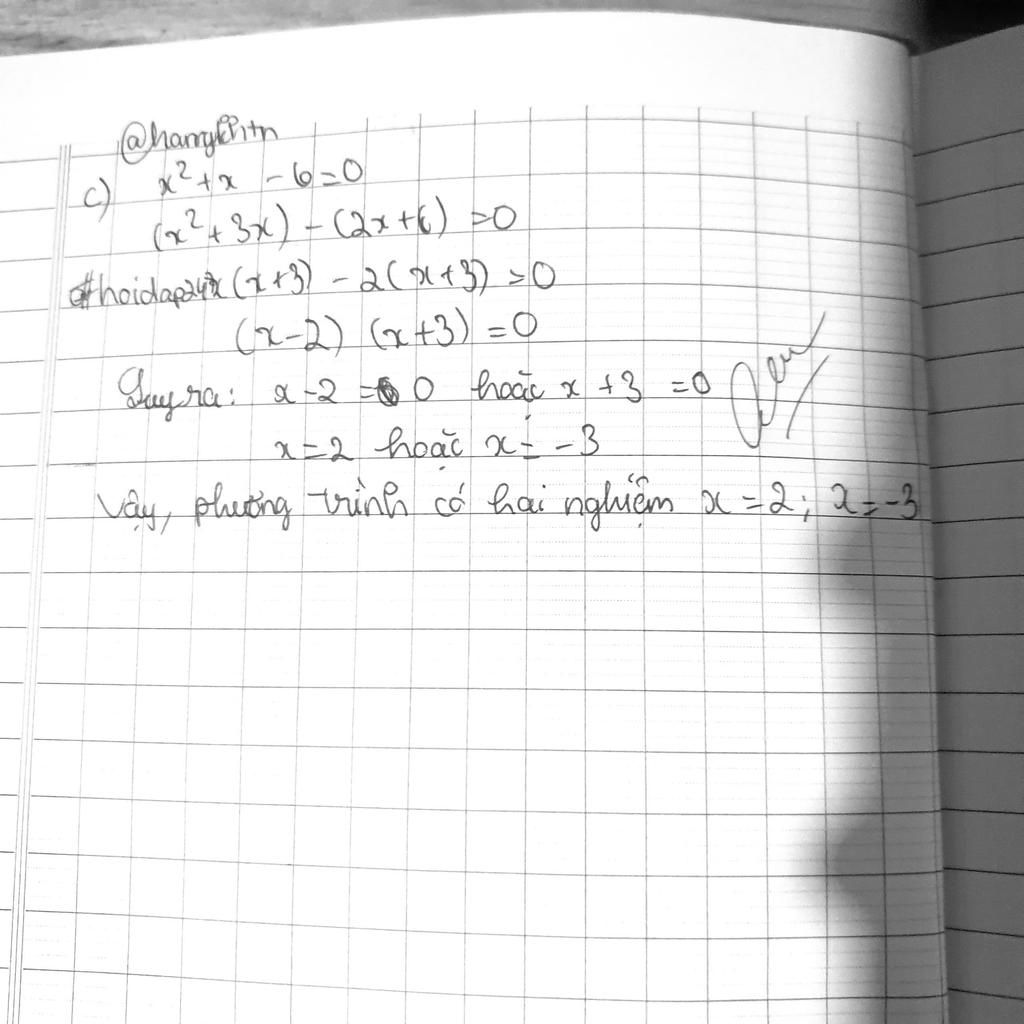 c) x² + x - 6 = 0
(x² + 3x) - (2x + 6) = 0
#hoidap247 x(x+3) - 2(x+3) = 0
(x-2) (x+3) = 0
Suy ra: x - 2 = 0 hoặc x + 3 = 0
x = 2 hoặc x = -3
Vậy, phương trình có hai nghiệm x = 2; x = -3